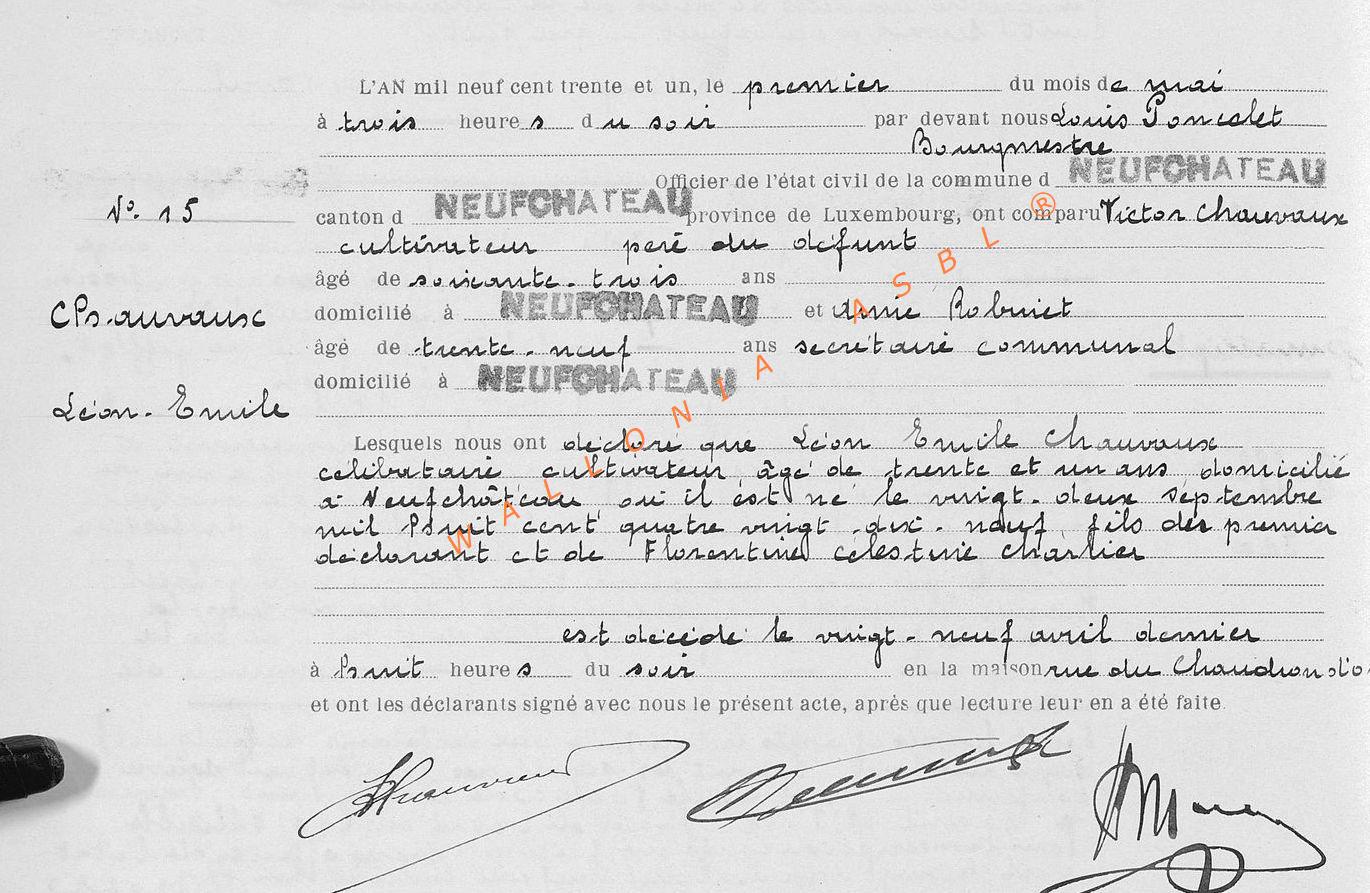 L'AN mil neuf cent trente et un, le premier du mois de mai
à trois heures du soir par devant nous Louis Poncelet
Bourgmestre
Officier de l'état civil de la commune d NEUFCHATEAU
N° 15
canton d NEUFCHATEAU province de Luxembourg, ont comparu Victor Chauvaux
cultivateur père du défunt
âgé de soixante-trois ans
Chauvaux
domicilié à NEUFCHATEAU et Robinet
âgé de trente-neuf ans secrétaire communal
domicilié à NEUFCHATEAU
Léon-Emile
Lesquels nous ont déclaré que Léon Emile Chauvaux
célibataire cultivateur âgé de trente et un ans domicilié
à Neufchâteau où il est né le vingt-deux septembre
mil huit cent quatre vingt-dix-neuf fils des premier
déclarant et de Florentine Célestine Charlier
est décédé le vingt-neuf avril dernier
à huit heures du soir en la maison rue du Chaudron d'o
et ont les déclarants signé avec nous le présent acte, après que lecture leur en a été faite.
WALLONIA ASBL ®